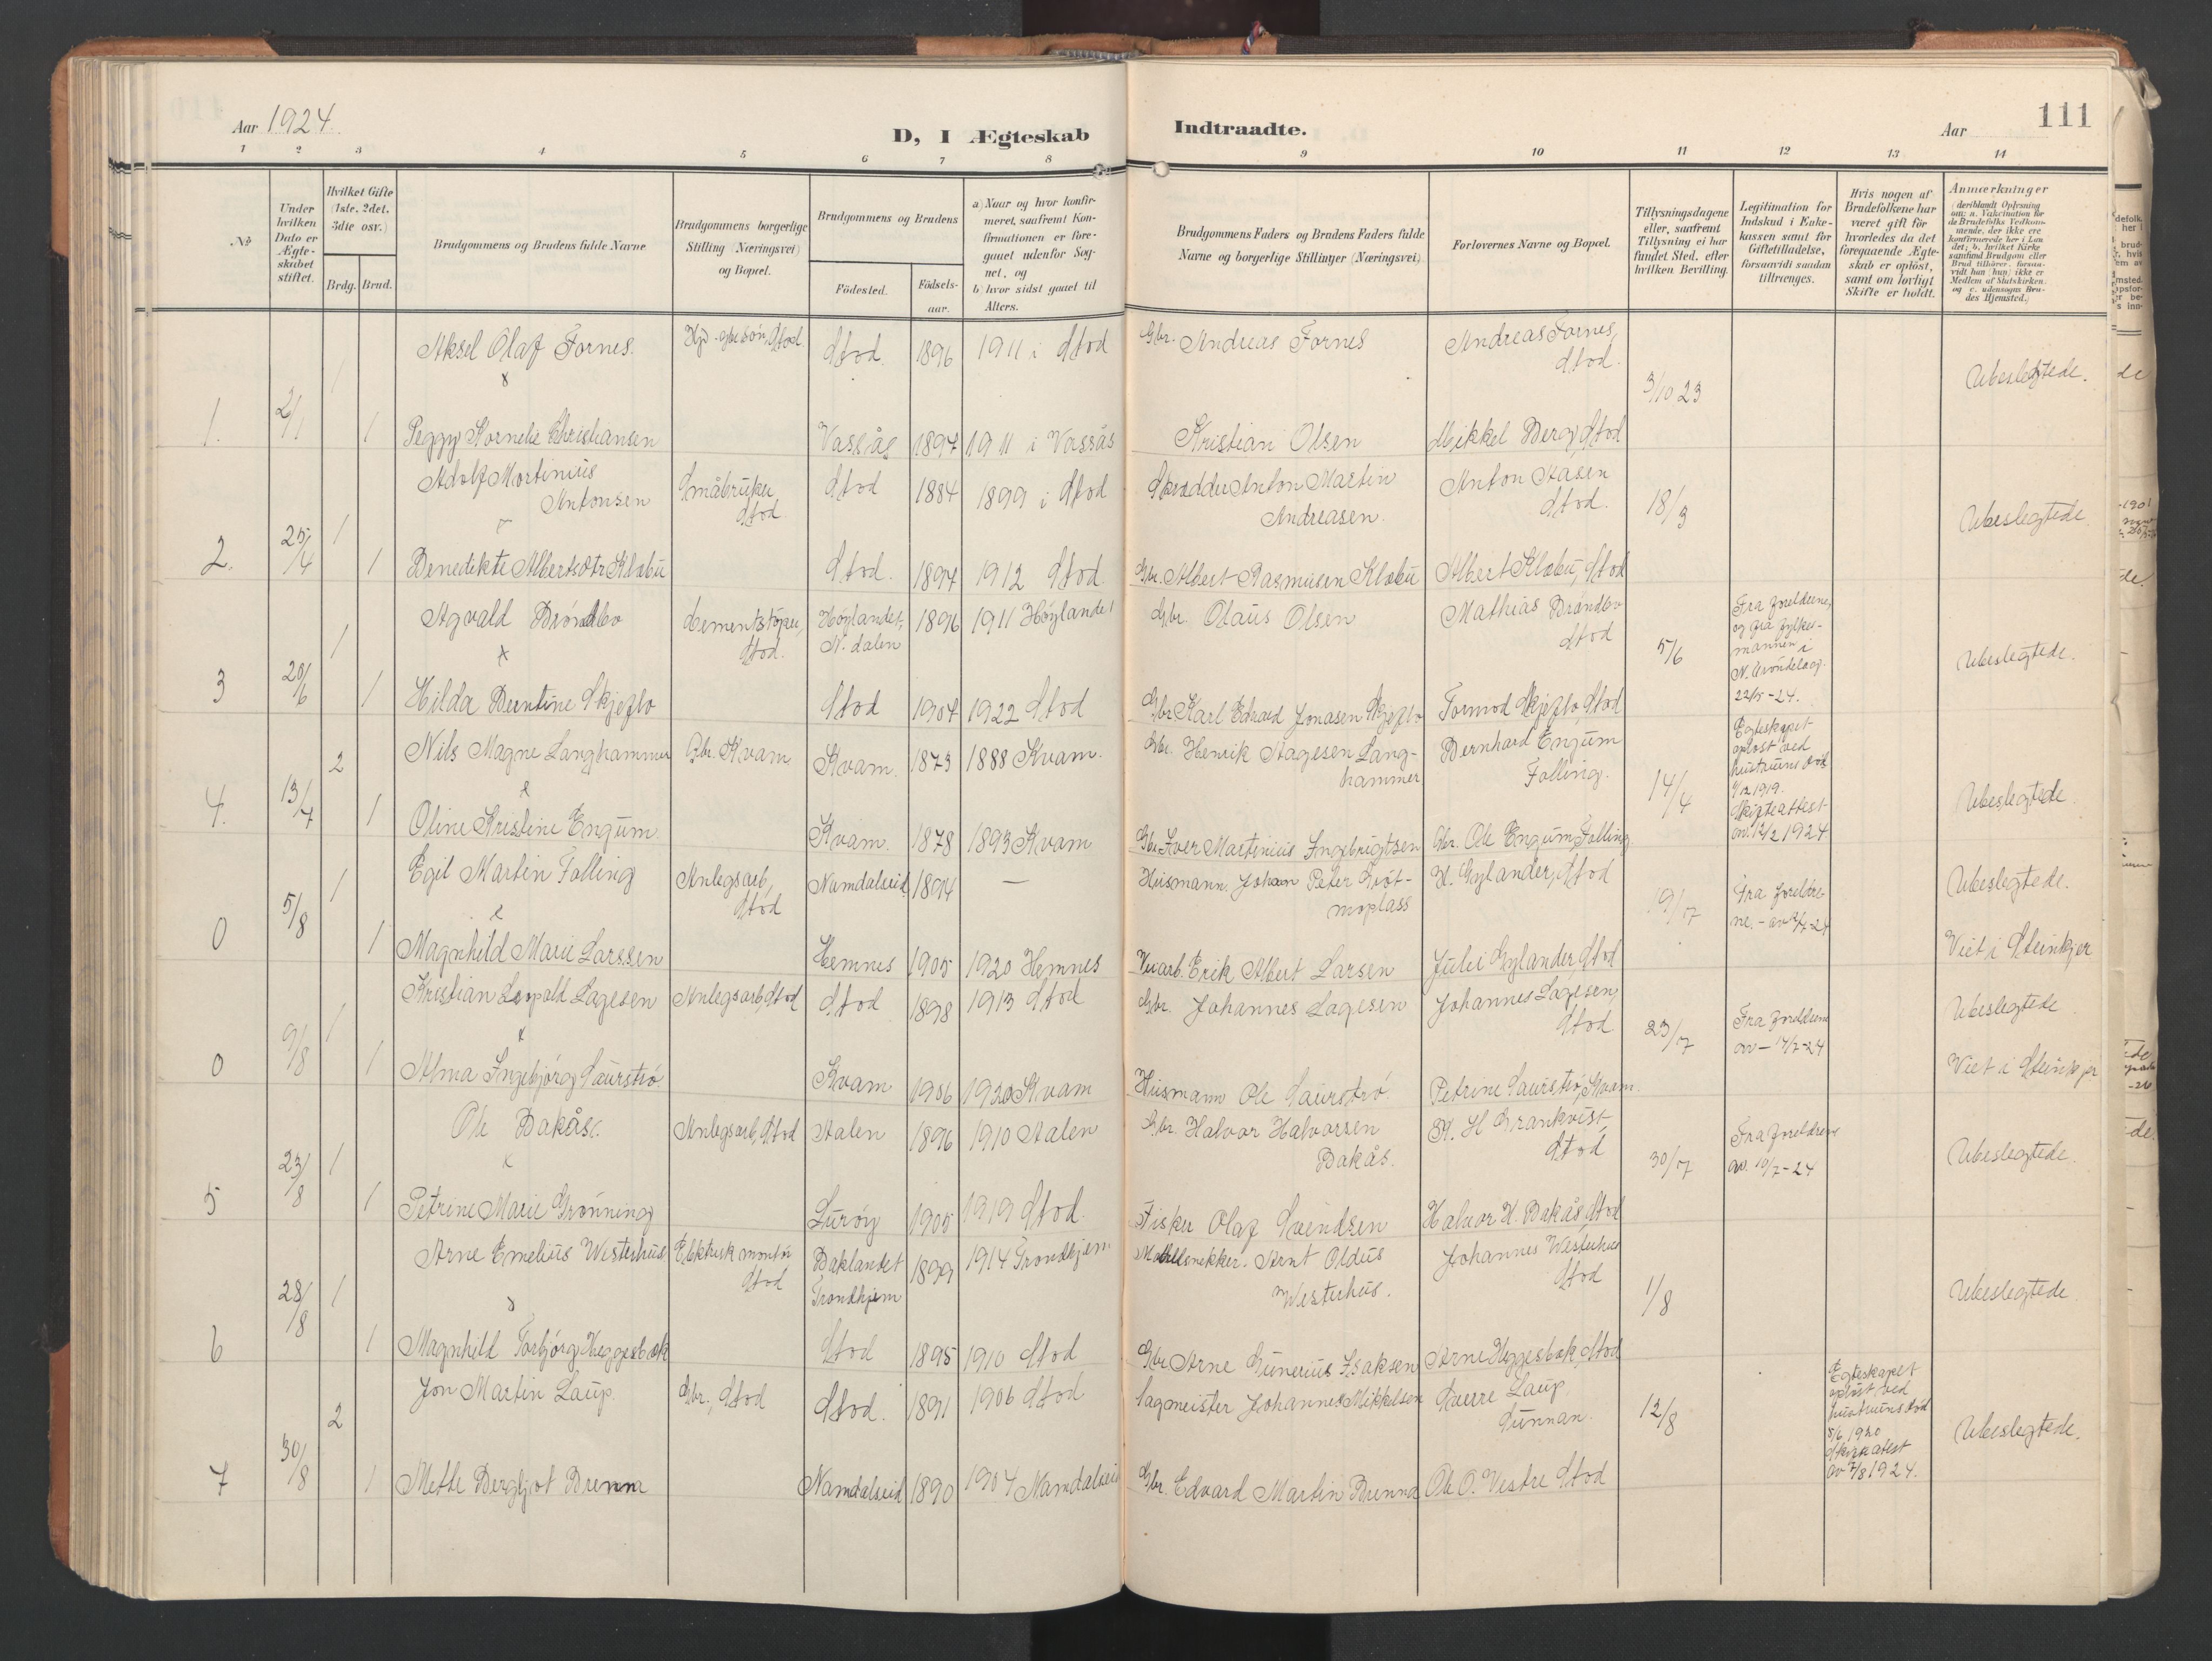 Aar 1924.
D, I Ægteskab
Indtraadte.
Aar
111
1 2 3 4 5 6 7 8 9 10 11 12 13 14
No
Under
hvilken
Dato er
Ægte-
skabet
stiftet.
Hvilket Gifte
(1ste, 2det,
3die osv.)
Brdg. Brud.
Brudgommens og Brudens fulde Navne
Brudgommens borgerlige
Stilling (Næringsvei)
og Bopæl.
Brudgommens og Brudens
Födested.
Födsels-
aar.
a) Naar og hvor konfir-
meret, saafremt Kon-
firmationen er fore-
gaaet udenfor Sog-
net, og
b) hvor sidst gaaet til
Alters.
Brudgommens Faders og Brudens Faders fulde
Navne og borgerlige Stillinger (Næringsvei)
Forlovernes Navne og Bopæl.
Tillysningsdagene
eller, saafremt
Tillysning ei har
fundet Sted, efter
hvilken Bevilling.
Legitimation for
Indskud i Enke-
kassen samt for
Giftetilladelse,
forsaavidt saadan
tiltrænges.
Hvis nogen af
Brudefolkene har
været gift før
hvorledes da det
foregaaende Ægte-
skab er opløst,
samt om lovligt
Skifte er holdt.
Anmærkninger
(deriblandt Oplysning
om: a. Vakcination for
de Brudefolks Vedkom-
mende, der ikke ere
konfirmerede her i Lan
det; b. hvilket Kirke
samfund Brudgom eller
Brud tilhører, forsaa-
vidt han (hun) ikke er
Medlem af Statskirken;
og c. udensogns Bru-
des Hjemsted.)
1. 2/1 1 Aksel Olaf Fornes. Stod. 1896 1911 i Stod Gbr. Andreas Fornes Andreas Fornes, Stod. 3/10 23 Ubeslegtede.
1 Peggy Kornelie Christiansen Vassås 1897 1911 i Vassås Kristian Olsen Mikkel Berg, Stod
2. 25/4 1 Adolf Martinius Antonsen Småbruker, Stod. Stod 1884 1899 i Stod Skrædder Anton Martin Andreasen. Anton Aasen Stod. 18/3 Ubeslegtede
1 Benedikte Albertsdtr Klæbu Stod. 1894 1912 Stod Gbr. Albert Rasmusen Klæbu Albert Klæbu, Stod
3 20/6 1 Agvald Brøndbo Sementstøper, Stod. Høylandet, N. dalen 1896 1911 Høylandet Gbr. Olaus Olsen Mathias Brøndbo Stod 5/6 Fra foreldrene, og fra fylkes-mannen i N. Trøndelag. 22/5-24. Ubeslegtede.
1 Hilda Berntine Skjeflo Stod 1904 1922 Stod Gbr Karl Edvard Jonasen Skjeflo Tormod Skjeflo, Stod
4. 13/4 2 Nils Magne Langhammer Gbr. Kvam Kvam. 1873 1888 Kvam. Gbr. Henrik Aagesen Lang-hammer Bernhard Engum Følling. 14/4 Egteskapet opløst ved hustruens død 1/12 1919. Skifteattest av. 12/2 1924 Ubeslegtede
1 Oline Kristine Engum. Kvam. 1878 1893 Kvam Gbr Iver Martinius Ingebrigtsen Gbr. Ole Engum, Følling
0 5/8 1 Egil Martin Følling Anlegsarb, Stod Namdalseid 1894 — Husmann. Johan Peter Grøt-moplass H. Gylander, Stod 19/7 Fra foreldre-ne. - av 2/7-24 Ubeslegtede.
1 Magnhild Marie Larssen Hemnes 1905 1920 Hemnes Erik Albert Larsen Juli Gylander, Stod Viet i Steinkjer
0 9/8 1 Kristian Leopald Lagesen Anlegsarb, Stod Stod 1898 1913 Stod Gbr. Johannes Lagesen Johannes Lagesen, Stod 23/7 Fra foreldrene av - 14/7-24 Ubeslegtede
1 Alma Ingebjørg Saurstrø. Kvam 1906 1920 Kvam Husmann Ole Saurstrø. Petrine Saurstrø, Kvam. Viet i Steinkjer
5 23/8 1 Ole Bakås. Anlegsarb, Stod Aalen 1896 1910 Aalen Gbr. Halvor Halvorsen Bakås. K. H Grankvist Stod 30/7 Fra foreldrene av. 10/7-24 Ubeslegtede.
1 Petrine Marie Grønning Lurøy 1905 1919 Stod. Fisker Olaf Svendsen Halvor H. Bakås, Stod
6 28/8 1 Arne Emelius Westerhus Elektrisk montør Stod Baklandet Trondhjem 1899 1914 Trondhjem Modellsnekker. Arnt Oldus Westerhus. Johannes Westerhus Stod 1/8 Ubeslegtede
1 Magnhild Torbjørg Heggesbæk Stod 1895 1910 Stod Gbr Arne Gunerius Isaksen Arne Heggesbæk, Stod
7 30/8 2 Jon Martin Laup. Gbr., Stod Stod. 1891 1906 Stod Sagmeister Johannes Mikkelsen Sverre Laup Sunnan. 12/8 Egteskapet opløst ved hustruens død 5/6 1920 Skifteatest av 7/8 1924. Ubeslegtede.
1 Mette Bergljot Brenna Namdalseid 1890 1904 Namdalseid Gbr. Edvard Martin Brenna Ole O. Vestre Stod